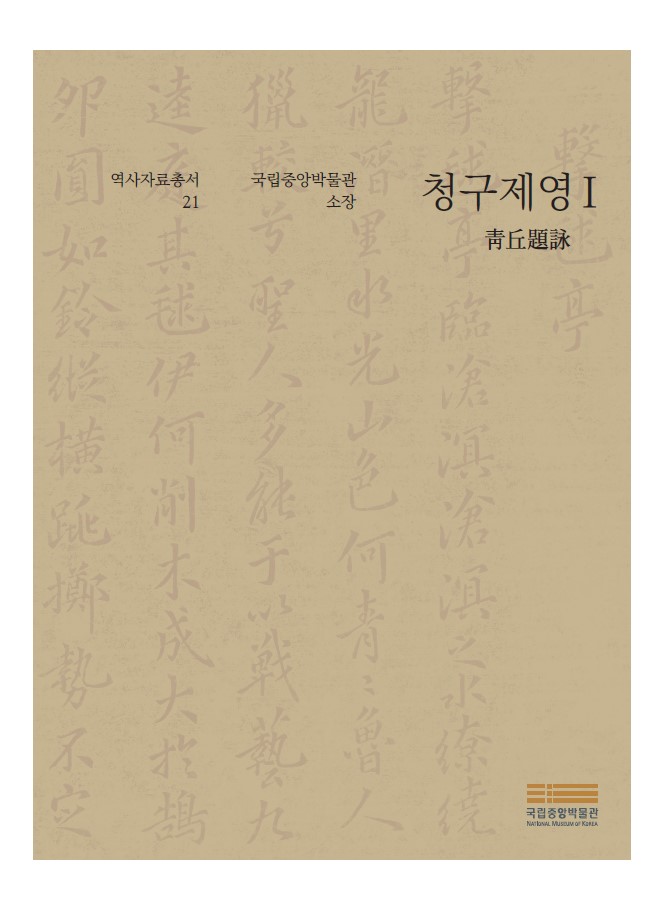 청구제영 I
靑丘題詠
국립중앙박물관
소장
역사자료총서
21
擊毬亭
擊毬亭臨滄溟滄溟之水繚繞
龍㬱里水光山色何青〻魯人
獵較兮聖人多能于以戰藝九
逵交其毬伊何削木成大於鵠
卵圎如鈴縱橫跳擲勢不定
국립중앙박물관
NATIONAL MUSEUM OF KOREA